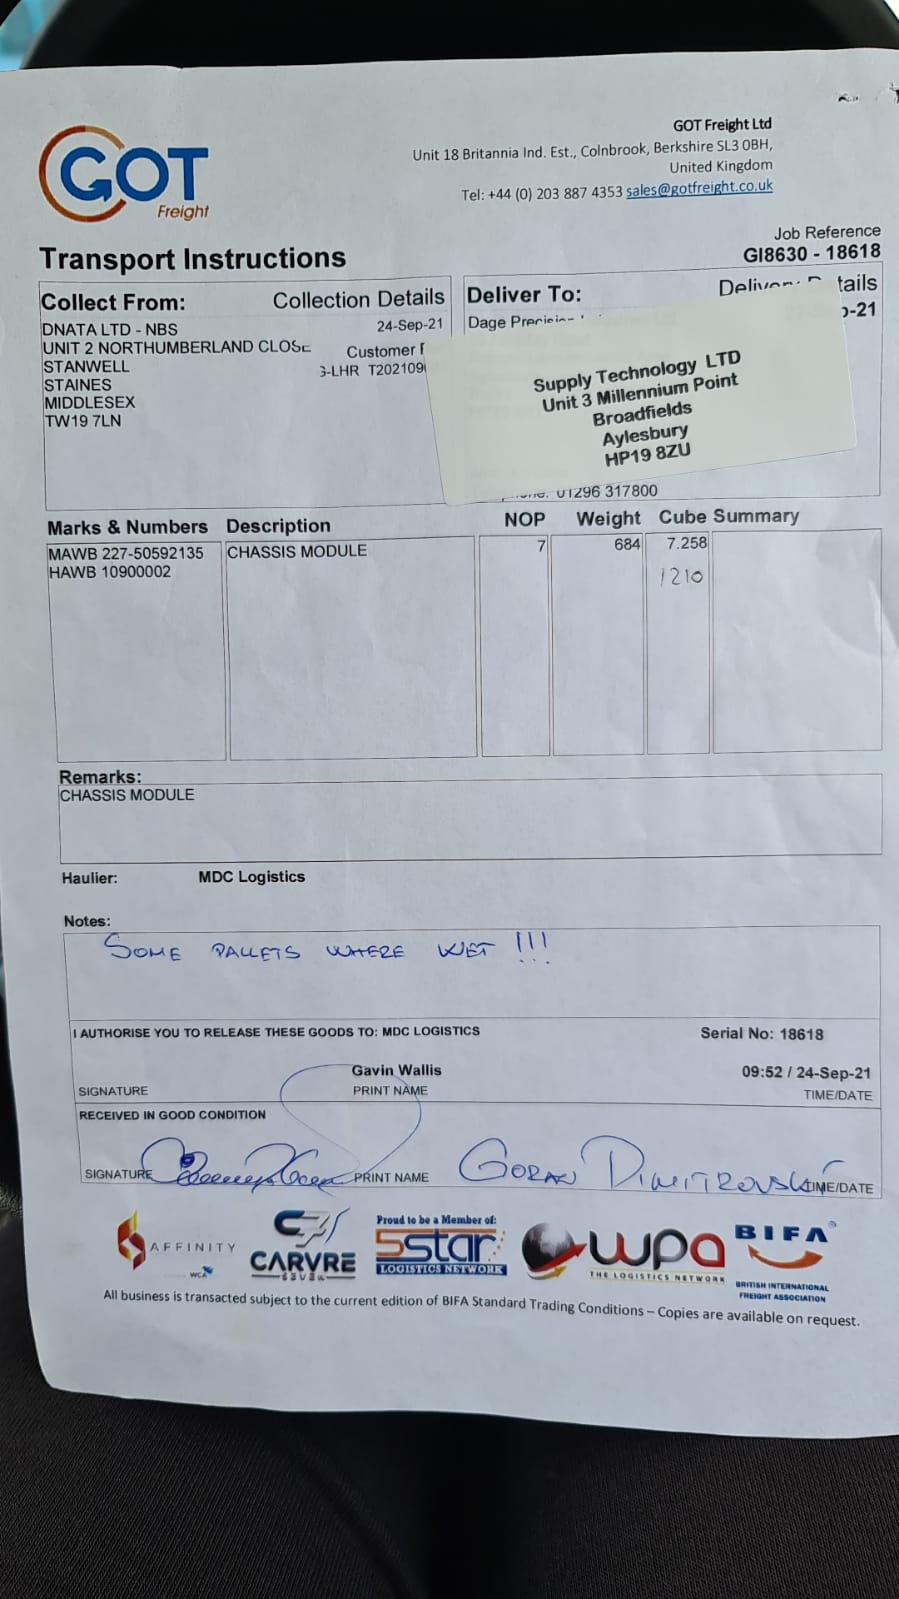 GOT
Freight
GOT Freight Ltd
Unit 18 Britannia Ind. Est., Colnbrook, Berkshire SL3 0BH,
United Kingdom
Tel: +44 (0) 203 887 4353 sales@gotfreight.co.uk
Job Reference
Transport Instructions GI8630 - 18618
Collect From: Collection Details
DNATA LTD - NBS 24-Sep-21
UNIT 2 NORTHUMBERLAND CLOSE
Customer
STANWELL -LHR T202109
STAINES
MIDDLESEX
TW19 7LN
Deliver To:
Dage -21
Supply Technology LTD
Unit 3 Millennium Point
Broadfields
Aylesbury
HP19 8ZU
01296 317800
Marks & Numbers Description NOP Weight Cube Summary
MAWB 227-50592135 CHASSIS MODULE 7 684 7.258
HAWB 10900002 1210
Remarks:
CHASSIS MODULE
Haulier: MDC Logistics
Notes:
SOME PALLETS WHERE WET !!!
I AUTHORISE YOU TO RELEASE THESE GOODS TO: MDC LOGISTICS Serial No: 18618
Gavin Wallis 09:52 / 24-Sep-21
SIGNATURE PRINT NAME TIME/DATE
RECEIVED IN GOOD CONDITION
SIGNATURE PRINT NAME GORAN DIMITROVSKI TIME/DATE
AFFINITY
WCA
CARVRE
SEVEN
Proud to be a Member of:
5star
LOGISTICS NETWORK
wpa
THE LOGISTICS NETWORK
BIFA
BRITISH INTERNATIONAL
FREIGHT ASSOCIATION
All business is transacted subject to the current edition of BIFA Standard Trading Conditions – Copies are available on request.